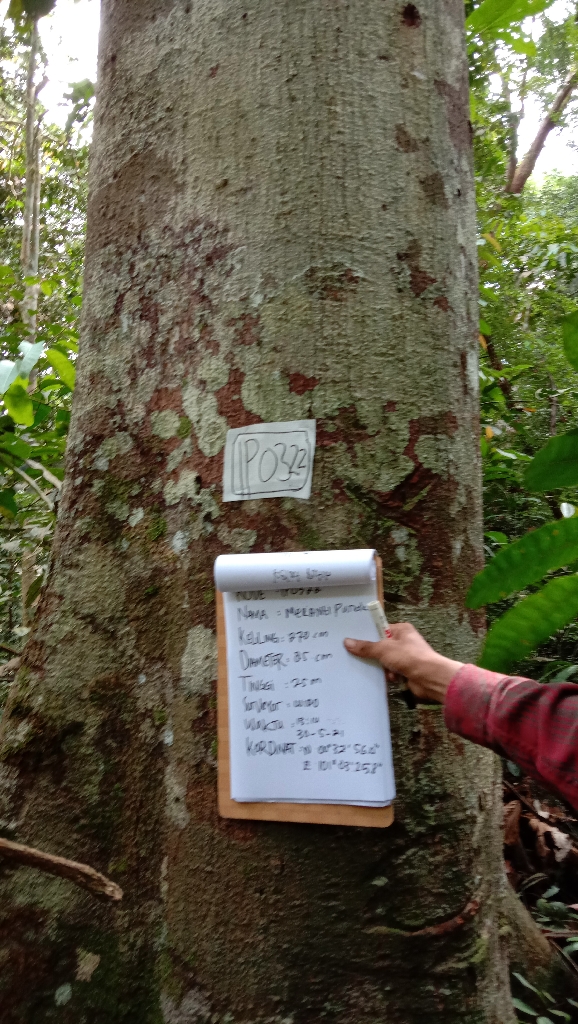 P0322
KODE : P0322
NAMA : MERANTI
KELILING : 270 cm
DIAMETER : 85 cm
TINGGI : 25 m
WAKTU :
30-5-21
KORDINAT : N 00°32'56.0"
E 101°